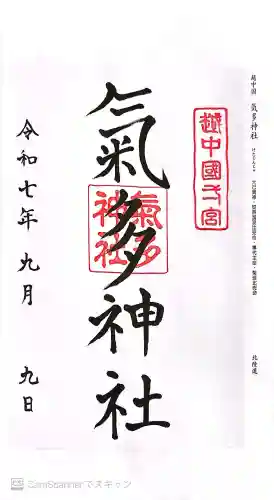 越中国 氣多神社
けたじんじゃ
北陸道
越中國一宮
氣多神社
氣多
神社
令和七年 九月 九日
CamScannerでスキャン